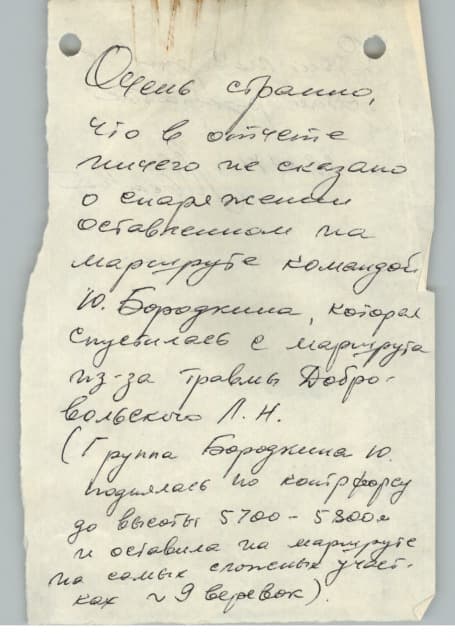 Очень странно,
что в отчете
ничего не сказано
о снаряжении
оставленном на
маршруте командой
Ю. Бородкина, которая
спустилась с маршрута
из-за травмы Добро-
вольского Л. Н.
(Группа Бородкина Ю.
поднялась по контрфорсу
до высоты 5700 – 5800м
и оставила на маршруте
на самых сложных участ-
ках ~ 9 веревок).